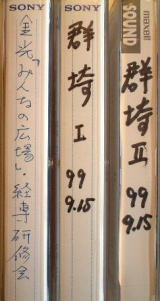 SONY
金光「みんなの広場」・経専研修会
SONY
群埼 I 99 9.15
maxell
SOUND
群埼 II 99 9.15